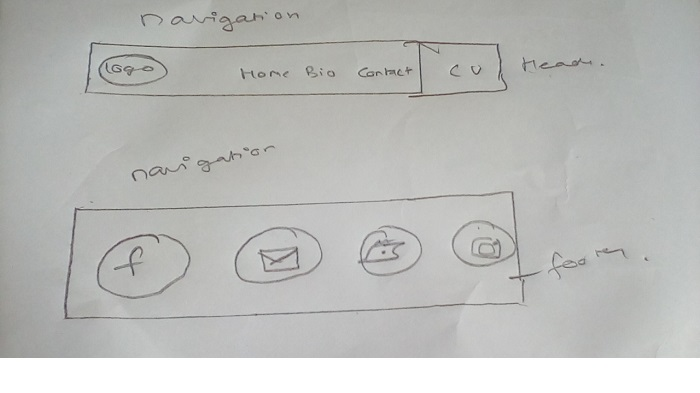 navigation
logo Home Bio Contact CV Header.
navigation
f
footer.